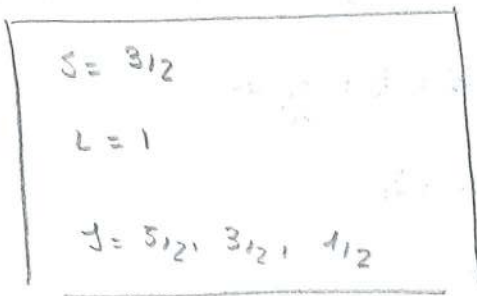 S = 3/2
L = 1
J = 5/2, 3/2, 1/2